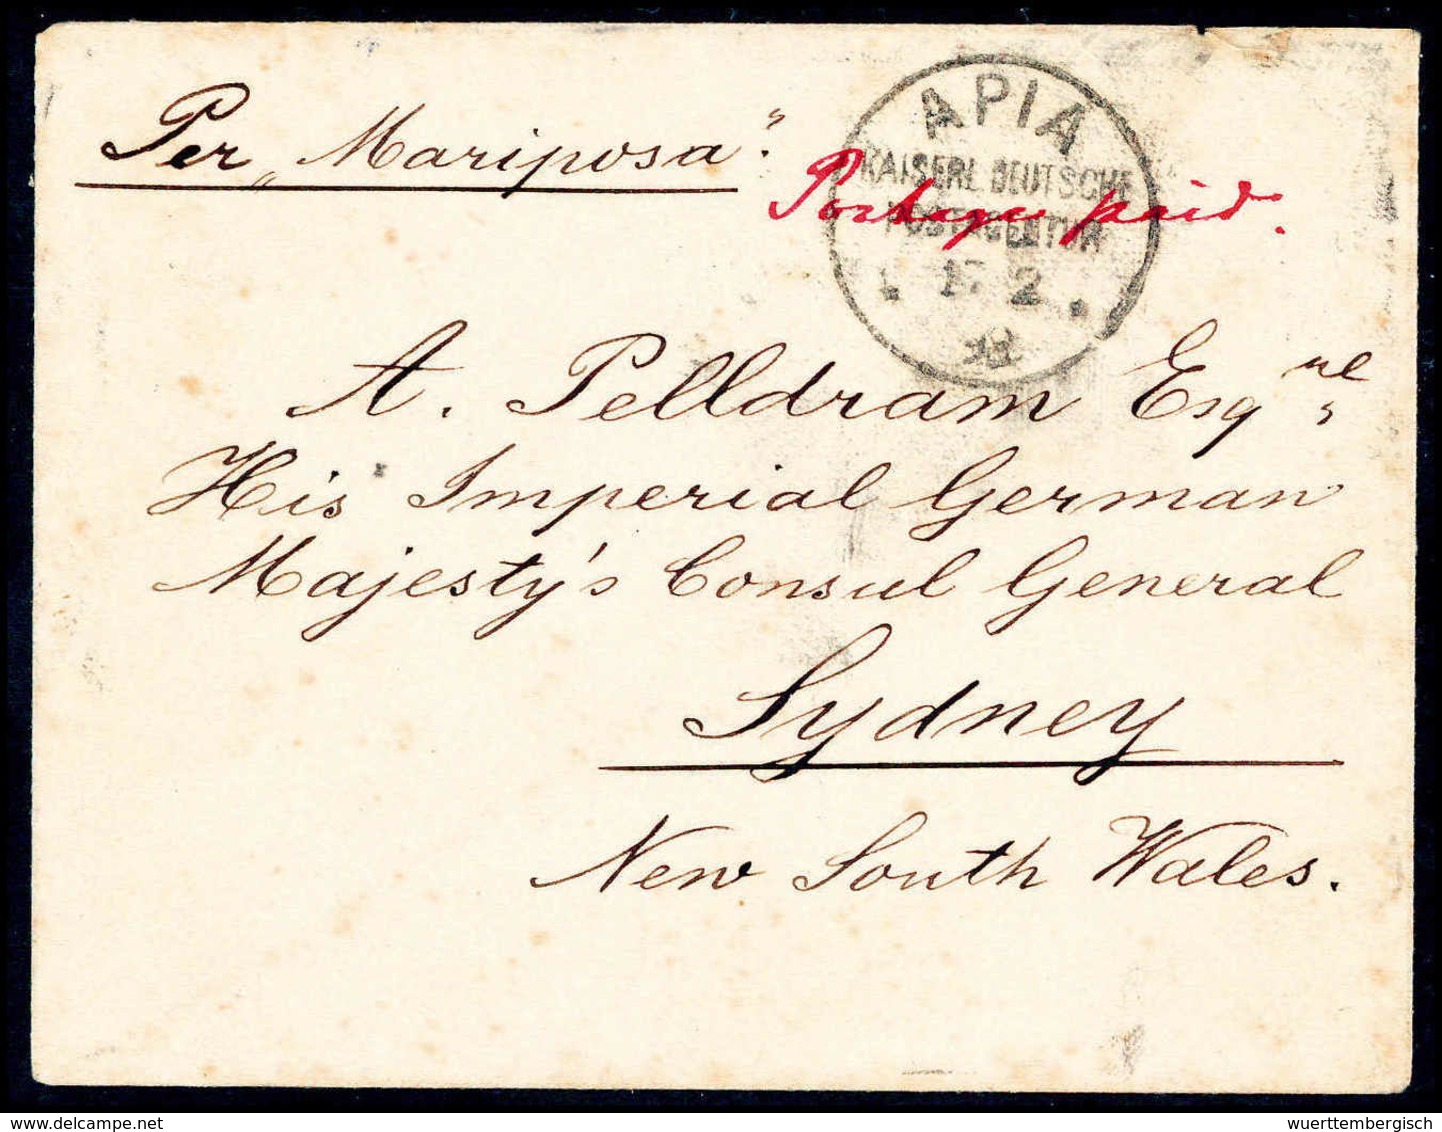 Per „Mariposa".
APIA
KAISERL. DEUTSCHE
POSTAGENTUR
2
Postage paid.
A. Pelldram Esqre
His Imperial German
Majesty's Consul General
Sydney
New South Wales.
wuerttembergisch